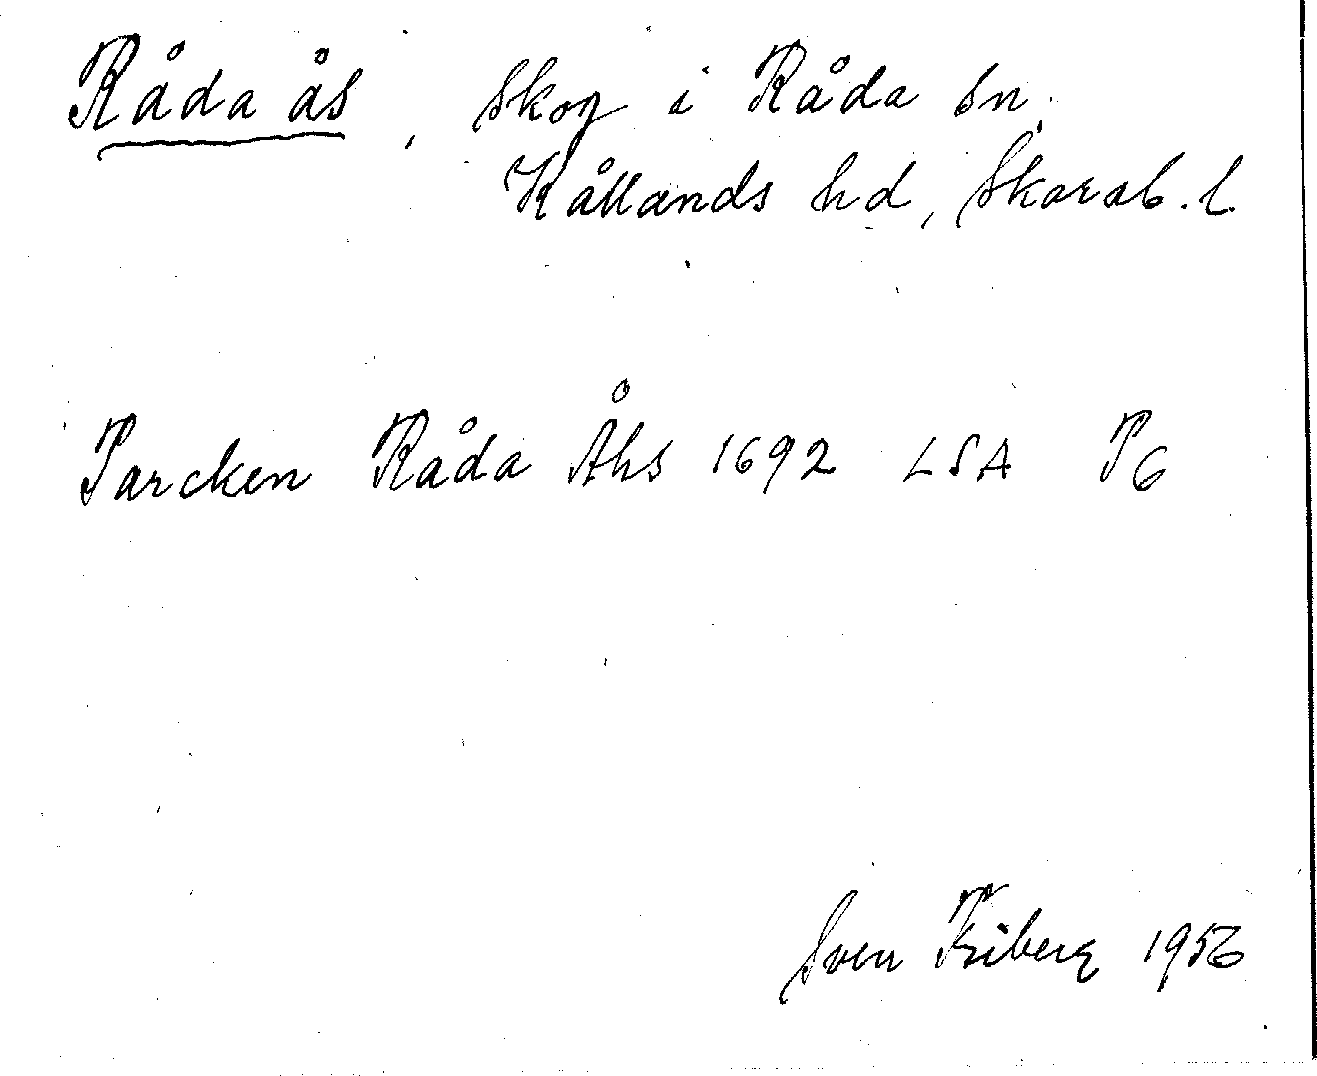 Råda ås, Skog i Råda sn,
Kållands hd, Skarab. l.
Parcken Råda Åhs 1692 LSA P6
Sven Friberg 1956